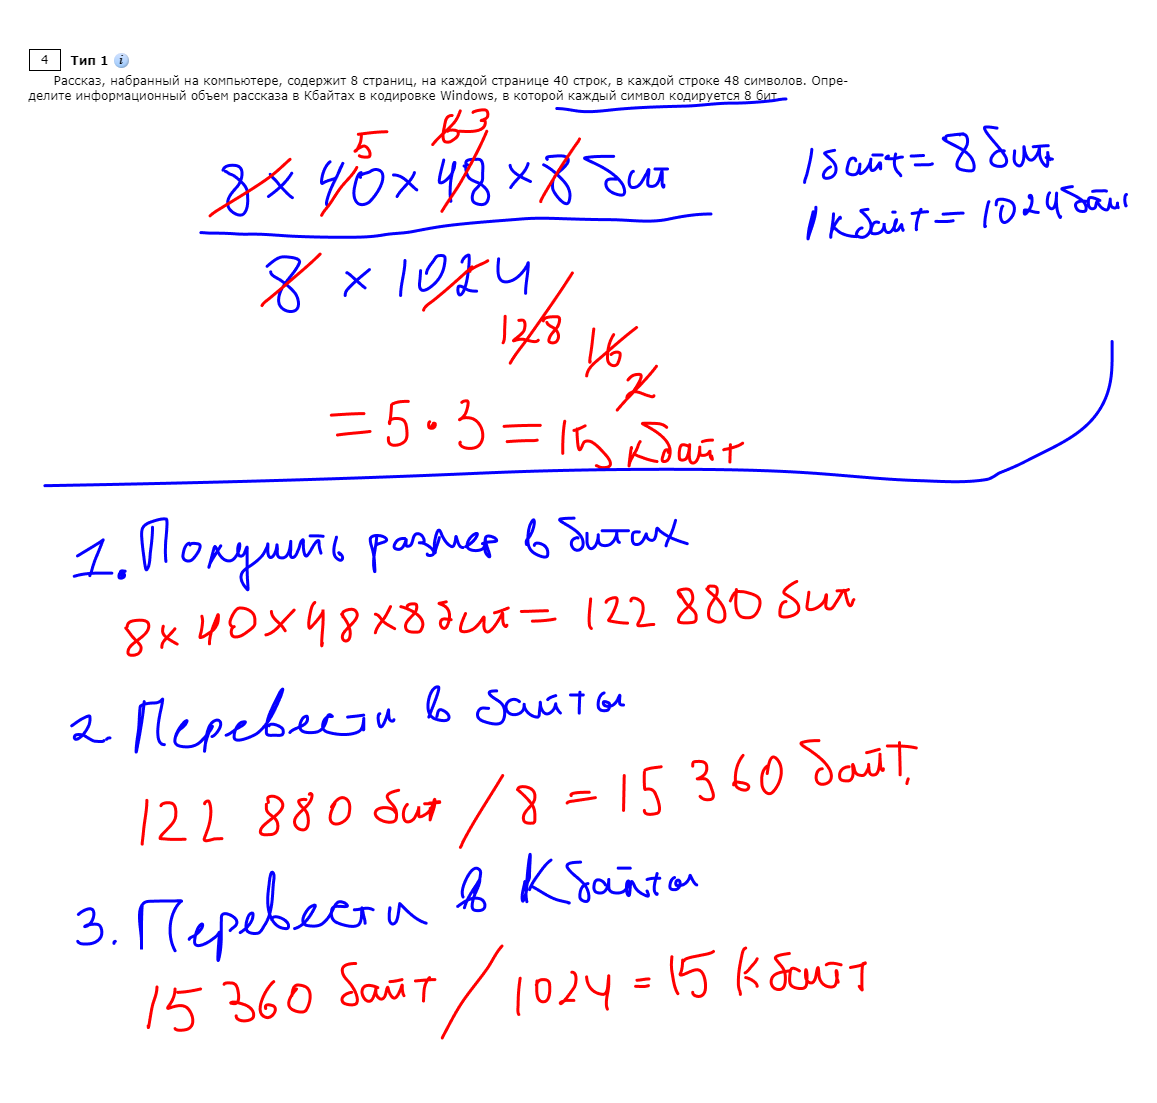 4 Тип 1 i
Рассказ, набранный на компьютере, содержит 8 страниц, на каждой странице 40 строк, в каждой строке 48 символов. Опре-
делите информационный объем рассказа в Кбайтах в кодировке Windows, в которой каждый символ кодируется 8 бит.
5 63
8 × 40 × 48 × 8 бит
8 × 1024
128 16
2
= 5 · 3 = 15 кбайт
1 байт = 8 бит
1 кбайт = 1024 байт
1. Получить размер в битах
8 × 40 × 48 × 8 бит = 122 880 бит
2. Перевести в байты
122 880 бит / 8 = 15 360 байт.
3. Перевести в Кбайты
15 360 байт / 1024 = 15 Кбайт